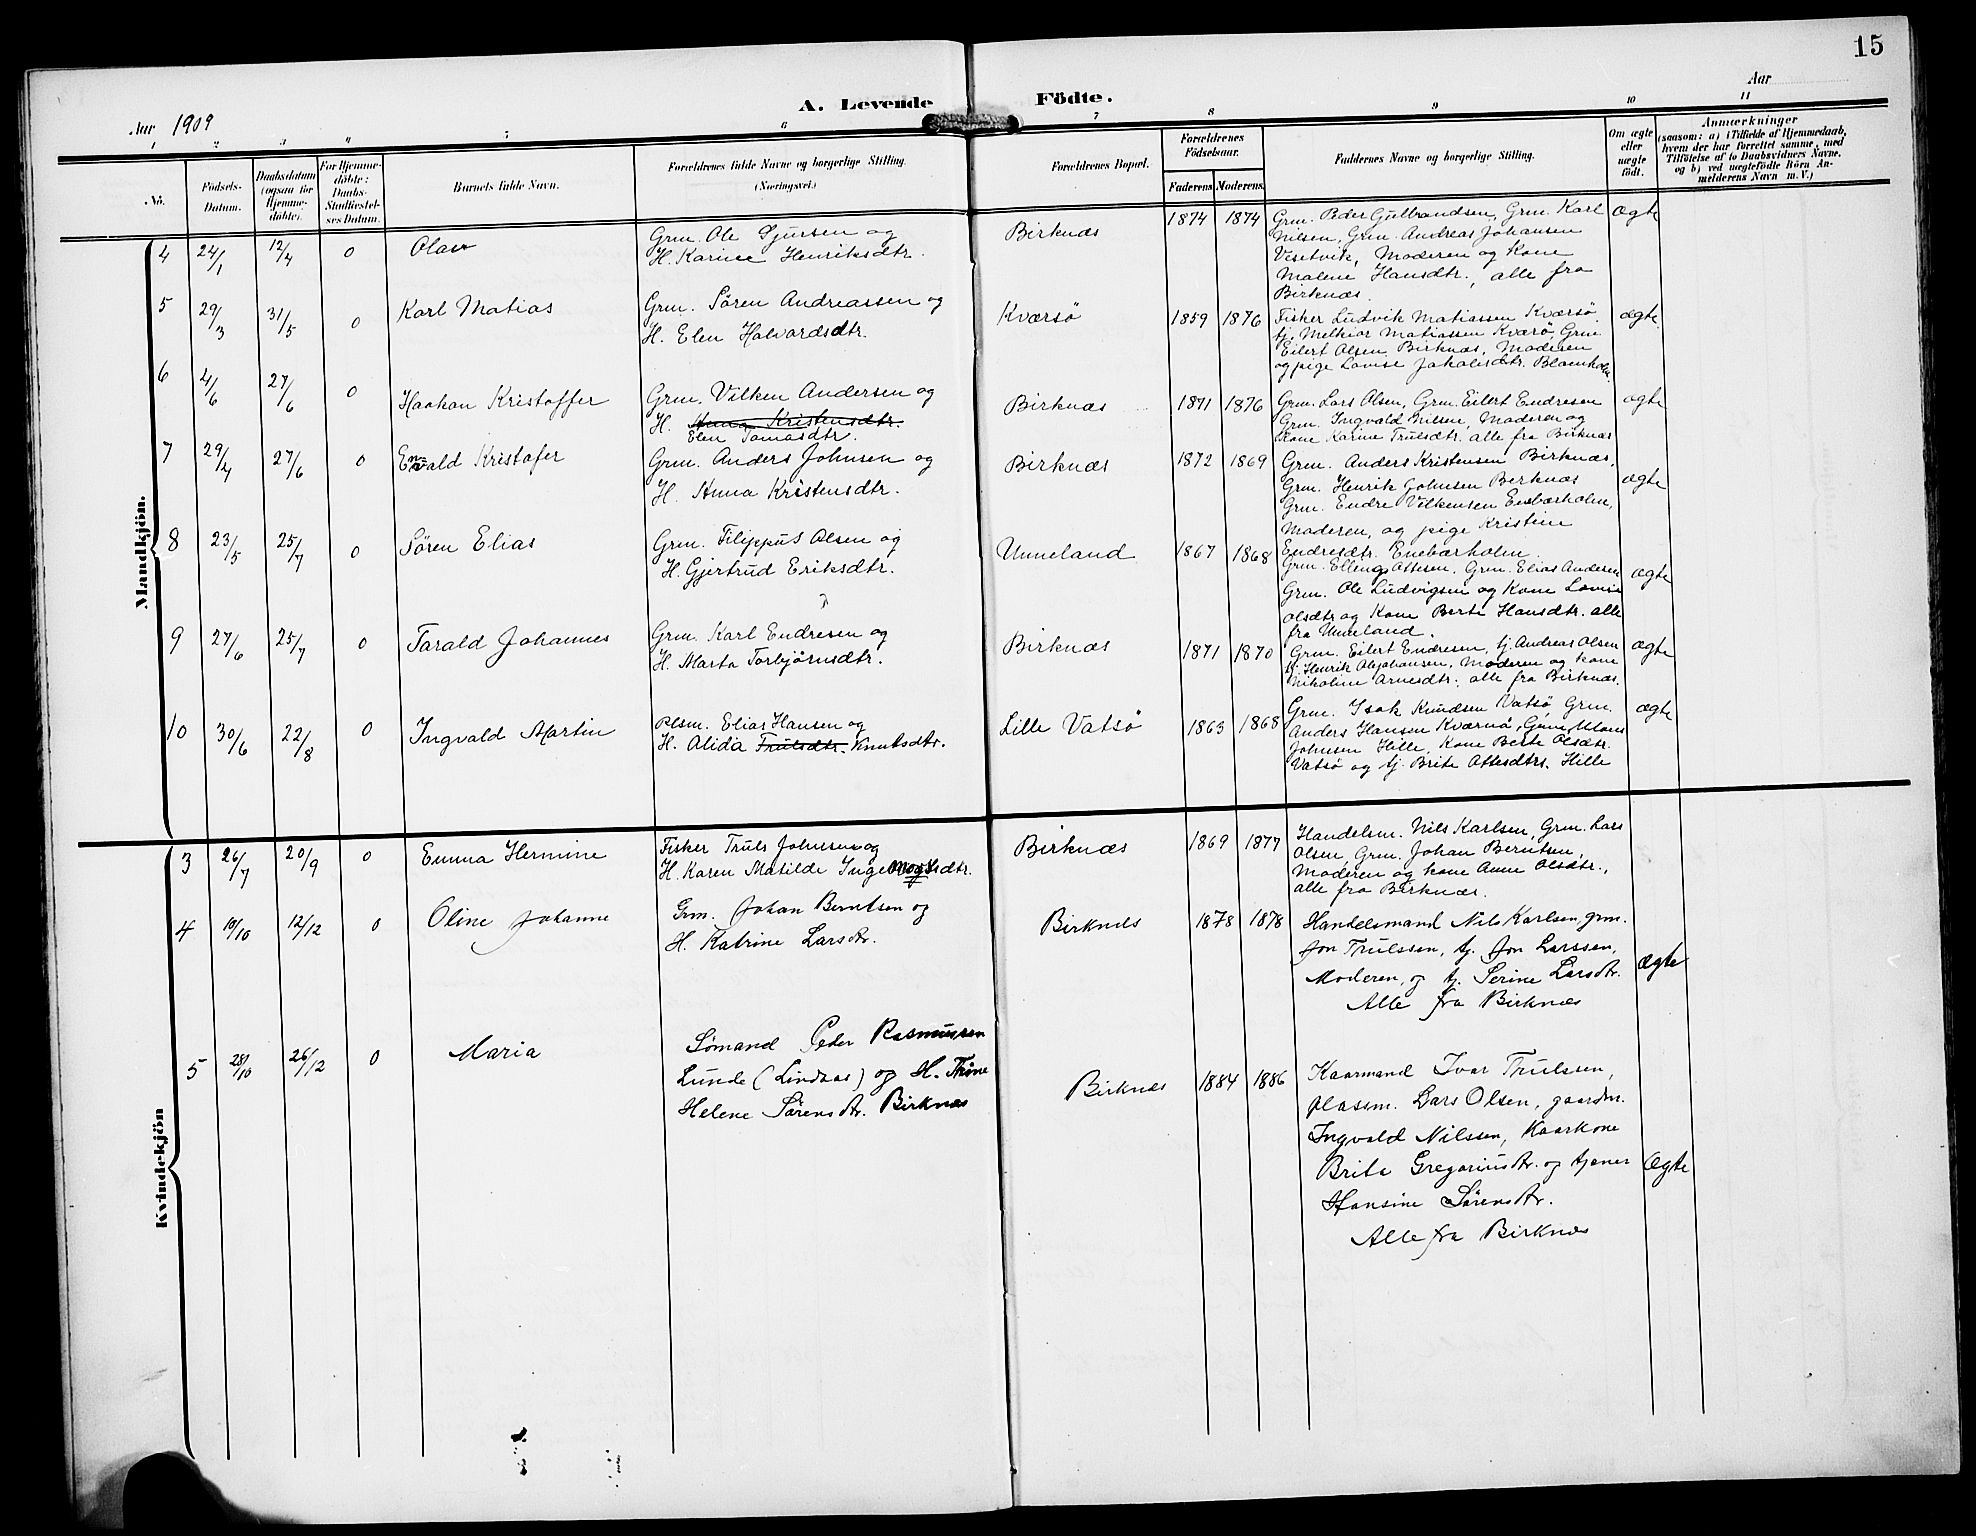 15
A. Levende Födte.
Aar 1909
Aar
1 2 3 4 5 6 7 8 9 10 11
No.
Födsels-Datum.
Daabsdatum (ogsaa for Hjemme-döbte).
For Hjemme-döbte: Daabs-Stadfæstel-ses Datum.
Barnets fulde Navn.
Forældrenes fulde Navne og borgerlige Stilling.
(Næringsvei.)
Forældrenes Bopæl.
Forældrenes Födselsaar.
Faderens. Moderens.
Faddernes Navne og borgerlige Stilling.
Om ægte eller uægte födt.
Anmærkninger
(saasom: a) i Tilfælde af Hjemmedaab,
hvem der har forrettet samme, med
Tilföielse af to Daabsvidners Navne,
og b) ved uægtefödte Börn An-
melderens Navn m. V.)
Mandkjön.
4 24/1 12/4 0 Olav
Grm. Ole Sjursen og
H. Karine Henriksdtr.
Birknæs 1874 1874
Grm. Peder Gulbrandsen, Grm. Karl
Nilsen, Grm. Andreas Johansen
Vesetvik, Moderen og Kone
Malene Hansdtr., alle fra
Birknæs.
Ægte
5 29/3 31/5 0 Karl Matias
Grm. Søren Andreassen og
H. Elen Halvardsdtr.
Kværsø 1859 1876
Fisker Ludvik Matiassen Kværsø,
tj. Melkior Matiassen Kværø, Grm.
Eilert Olsen Birknæs, Moderen
og pige Lovise Jakobsdtr. Blomholm.
ægte
6 4/6 27/6 0 Haakan Kristoffer
Grm. Vilken Andersen og
H. Anna Kristensdtr.
Elen Tomasdtr.
Birknæs 1871 1876
Grm. Lars Olsen, Grm. Eilert Endresen
Grm. Ingvald Nilsen, Moderen og
Kone Karine Trulsdtr. alle fra Birknæs
ægte
7 29/4 27/6 0 Envald Kristofer
Grm. Anders Johnsen og
H. Anna Kristensdtr.
Birknæs 1872 1869
Grm. Anders Kristensen Birknæs,
Grm. Henrik Johnsen Birknæs
Grm. Endre Vilkensen Enebærholm,
Moderen, og pige Kristine
Endresdtr. Enebærholm.
ægte
8 23/5 25/7 0 Søren Elias
Grm. Filippus Olsen og
H. Gjertrud Eriksdtr.
Unneland 1867 1868
Grm. Elling Attesen, Grm. Elias Andersen
Grm. Ole Ludvigsen og Kone Lovise
Olsdtr og Kone Berte Hansdtr. alle
fra Unneland.
ægte
9 27/6 25/7 0 Tarald Johannes
Grm. Karl Endresen og
H. Marta Torbjørnsdtr.
Birknæs 1871 1870
Grm. Eilert Endresen, tj. Andreas Olsen
tj. Henrik Johansen, Moderen og kone
Nikoline Arnesdtr., alle fra Birknæs.
ægte
10 30/6 22/8 0 Ingvald Martin
Plsm. Elias Hansen og
H. Alida Trulsdtr. Knutsdtr.
Lille Vatsø 1863 1868
Grm. Isak Knudsen Vatsø, Grm.
Anders Hansen Kværnø, Grm. Mons
Johnsen Hille, Kone Berte Olsdtr.
Vatsø og tj. Brite Attesdtr. Hille
ægte
Kvindekjön
3 26/7 20/9 0 Emma Hermine
Fisker Truls Johnsen og
H. Karen Matilde Ingebrogtsdtr.
Birknæs 1869 1877
Handelsm. Nils Karlsen, Grm. Lars
Olsen, Grm. Johan Berntsen,
Moderen og kone Anne Olsdtr.,
alle fra Birknæs.
4 10/10 12/12 0 Oline Johanne
Grm. Johan Berntsen og
H. Katrine Larsdtr.
Birknes 1878 1878
Handelsmand Nils Karlsen, grm.
Jon Trulssen, tj. Jon Larssen,
Moderen, og tj. Serine Larsdtr.
Alle fra Birknæs
Ægte
5 28/10 26/12 0 Maria
Sømand Peder Rasmussen
Lunde (Lindaas) og H. Trine
Helene Sørensdtr. Birknæs
Birknæs 1884 1886
Kaarmand Ivar Trulssen,
plassm. Lars Olsen, gaardm.
Ingvald Nilssen, Kaarkone
Brita Gregoriusdtr. og tjener
Hansine Sørensdtr.
Alle fra Birknæs
Ægte